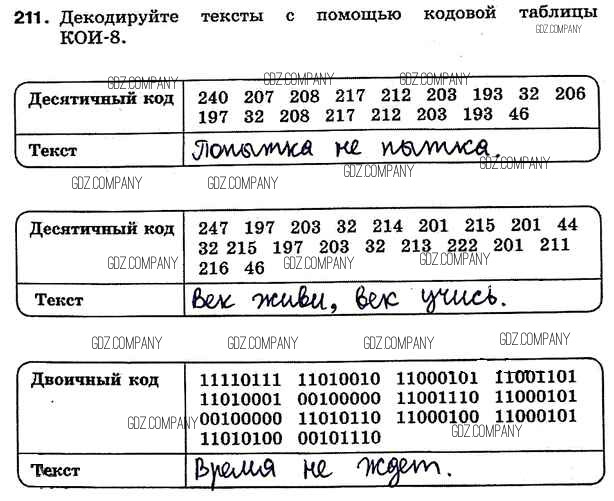 211. Декодируйте тексты с помощью кодовой таблицы
GDZ.COMPANY
КОИ-8.
GDZ.COMPANY GDZ.COMPANY GDZ.COMPANY
Десятичный код 240 207 208 217 212 203 193 32 206
197 32 208 217 212 203 193 46
Текст Попытка не пытка.
GDZ.COMPANY GDZ.COMPANY GDZ.COMPANY GDZ.COMPANY
Десятичный код 247 197 203 32 214 201 215 201 44
32 215 197 203 32 213 222 201 211
GDZ.COMPANY GDZ.COMPANY GDZ.COMPANY
216 46
Текст Век живи, век учись.
GDZ.COMPANY GDZ.COMPANY GDZ.COMPANY GDZ.COMPANY
Двоичный код 11110111 11010010 11000101 11001101
11010001 00100000 11001110 11000101
00100000 11010110 11000100 11000101
GDZ.COMPANY GDZ.COMPANY
11010100 00101110
Текст Время не ждет.